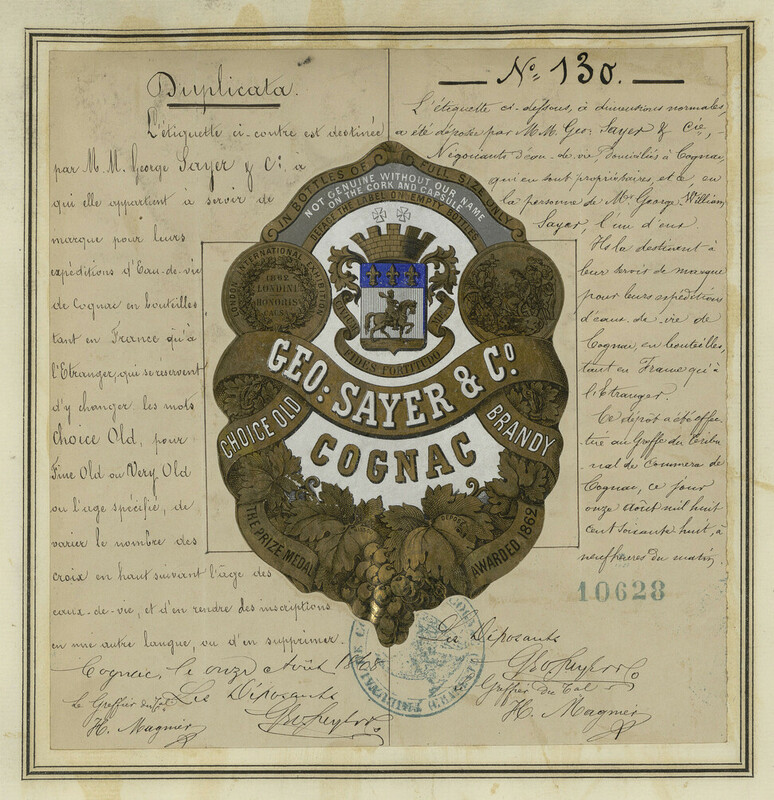 Duplicata.
L'étiquette ci-contre est destinée
par M. M. George Sayer & Cie, a
qui elle appartient à servir de
marque pour leurs
expéditions d'Eau-de-vie
de Cognac en bouteilles
tant en France qu'à
l'Etranger, qui se réservent
d'y changer les mots
Choice Old, pour
Fine Old ou Very Old
ou l'âge spécifié, de
varier le nombre des
croix en haut suivant l'âge des
eaux-de-vie, et d'en rendre les inscriptions
en une autre langue, ou d'en supprimer.
Cognac, le onze Août 1868
Le Greffier du Tal
Les Déposants
H. Magnier
Geo Sayer & Co
No 130.
L'étiquette ci-dessous, à dimensions normales,
a été déposée par M.M. Geo. Sayer & Cie,
Négociants d'eau-de-vie, Domiciliés à Cognac,
qui en sont propriétaires, et ce en
la personne de Mr. George William
Sayer, l'un d'eux
Ils la destinent à
leur servir de marque
pour leurs expéditions
d'eaux-de-vie de
Cognac, en bouteilles,
tant en France qu'à
l'Etranger.
Ce dépôt a été effec-
tué au Greffe du Tribu
nal de Commerce de
Cognac, ce jour
onze Août mil huit
cent soixante huit, à
neuf heures du matin,
10628
Les Déposants
Geo Sayer & Co
Greffier du Tal
H. Magnier
IN BOTTLES OF FULL SIZE ONLY
NOT GENUINE WITHOUT OUR NAME
ON THE CORK AND CAPSULE
DEFACE THE LABEL ON EMPTY BOTTLES
LONDON INTERNATIONAL EXHIBITION
1862
LONDINI
HONORIS
CAUSA
FIDES FORTITUDO
GEO: SAYER & Co
CHOICE OLD
BRANDY
COGNAC
DEPOSÉ
THE PRIZE MEDAL
AWARDED 1862